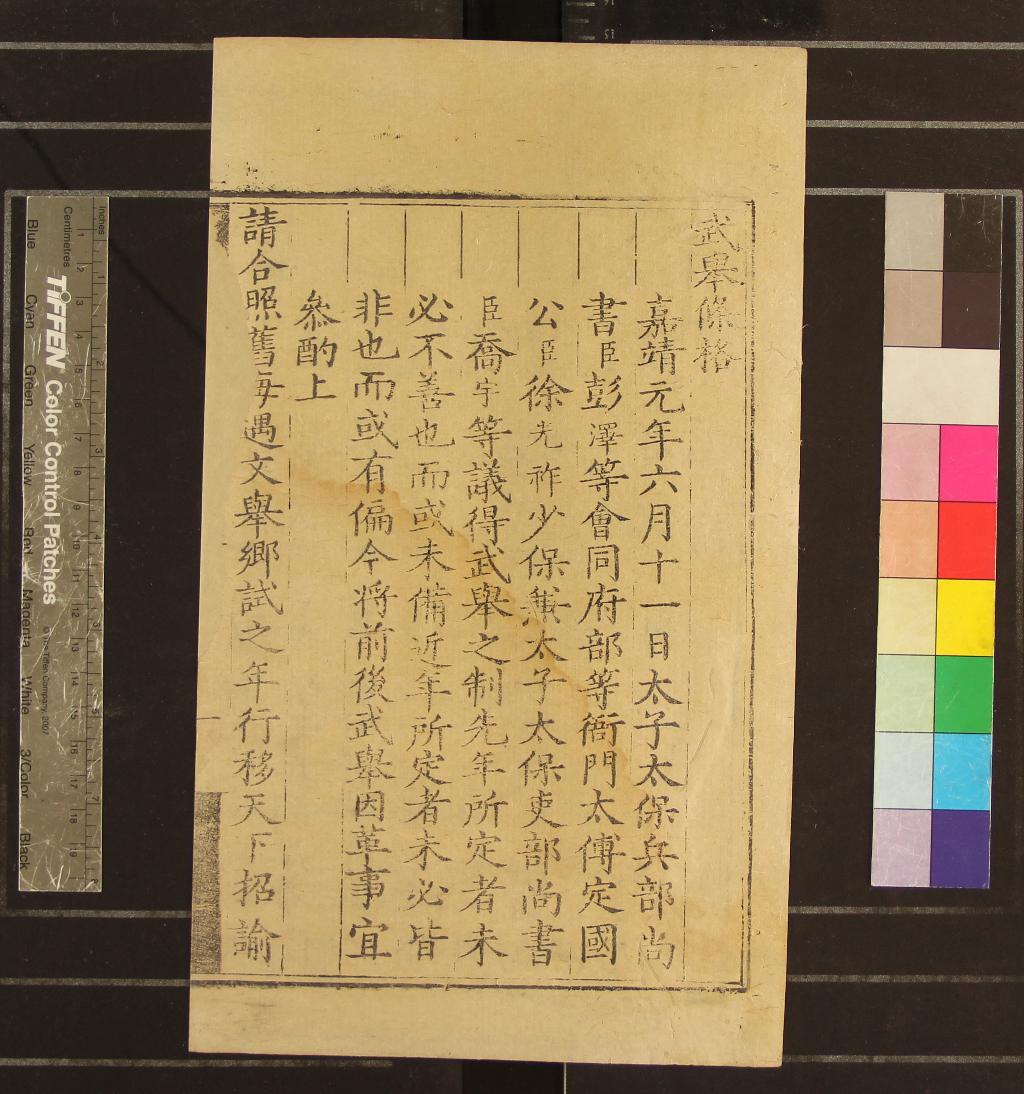 武舉條格
嘉靖元年六月十一日太子太保兵部尚
書臣彭澤等會同府部等衙門太傅定國
公臣徐光祚少保兼太子太保吏部尚書
臣喬宇等議得武舉之制先年所定者未
必不善也而或未備近年所定者未必皆
非也而或有偏今将前後武舉因革事宜
叅酌上
請合照舊每遇文舉鄉試之年行移天下招諭
Inches
Centimetres
TIFFEN Color Control Patches
© The Tiffen Company, 2007
Blue
Cyan
Green
Yellow
Red
Magenta
White
3/Color
Black